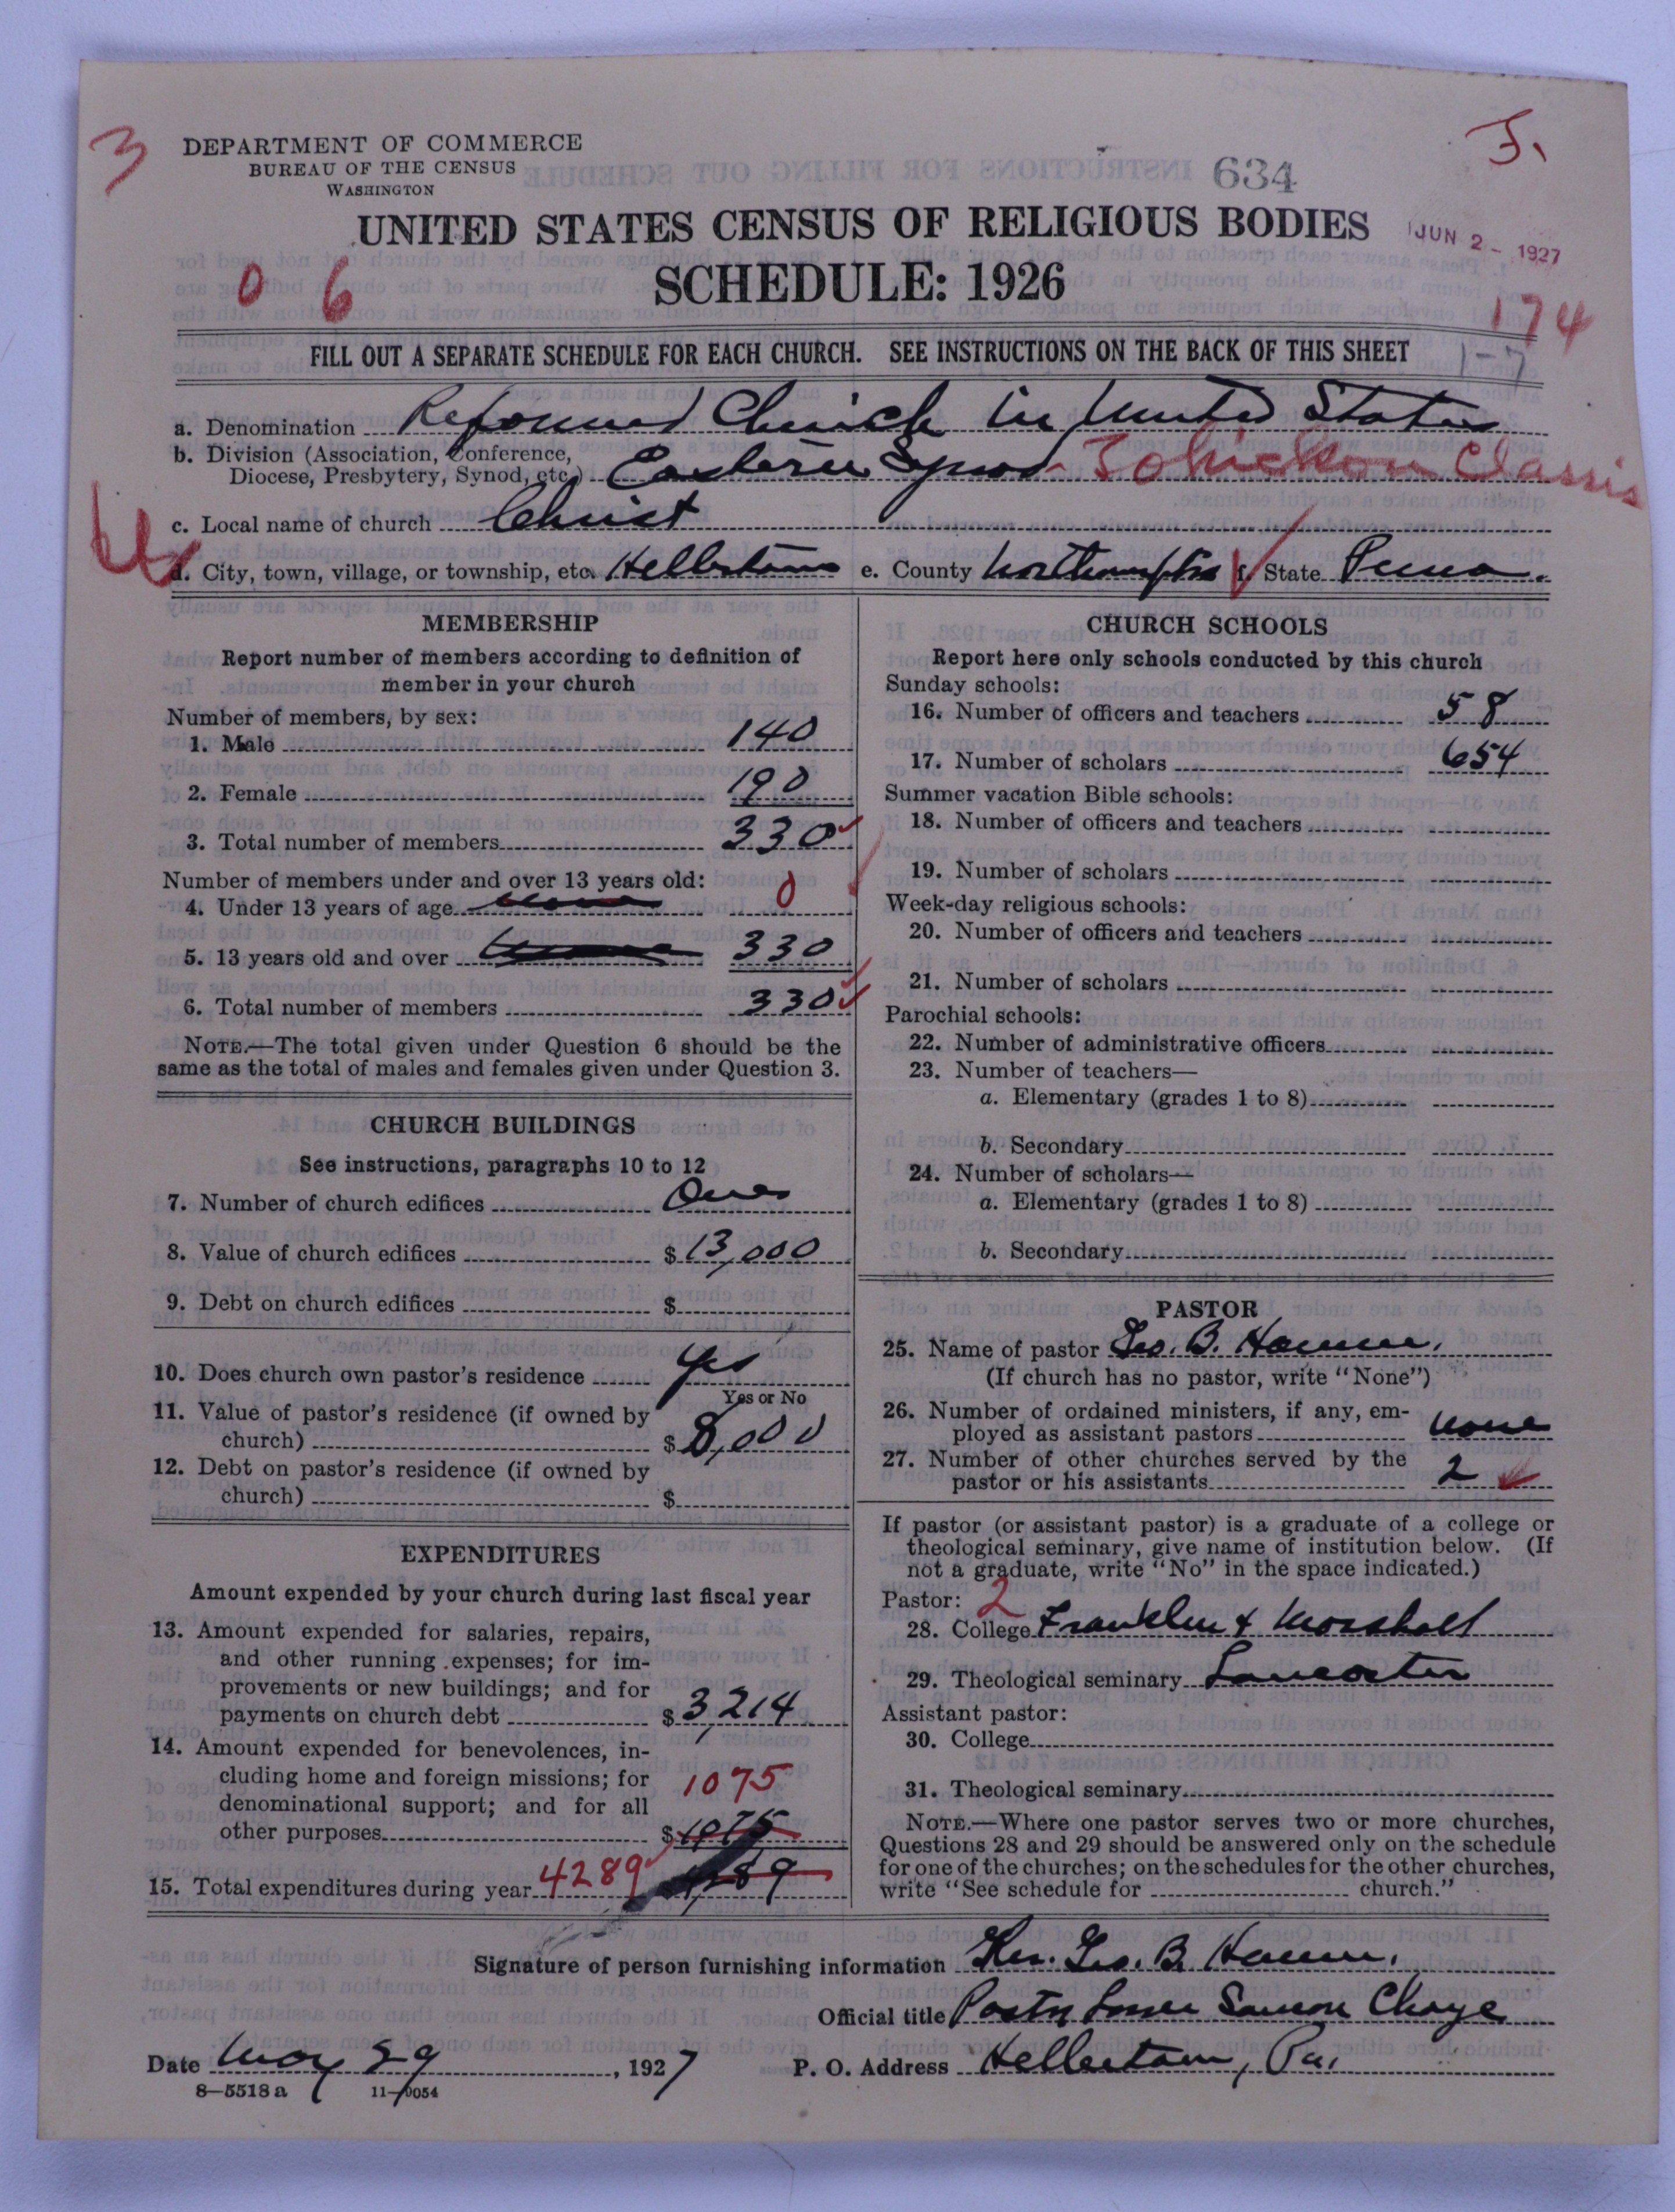 3
DEPARTMENT OF COMMERCE
BUREAU OF THE CENSUS
WASHINGTON
634
UNITED STATES CENSUS OF RELIGIOUS BODIES
JUN 2 - 1927
SCHEDULE: 1926
0 6
174
FILL OUT A SEPARATE SCHEDULE FOR EACH CHURCH. SEE INSTRUCTIONS ON THE BACK OF THIS SHEET
1-7
a. Denomination Reformed Church in United States
b. Division (Association, Conference,
Diocese, Presbytery, Synod, etc.) Eastern Synod - Tohickon Classis
c. Local name of church Christ
d. City, town, village, or township, etc. Hellertown e. County Northampton f. State Penna.
MEMBERSHIP
Report number of members according to definition of
member in your church
Number of members, by sex:
1. Male 140
2. Female 190
3. Total number of members 330
Number of members under and over 13 years old:
4. Under 13 years of age 0
5. 13 years old and over 330
6. Total number of members 330
NOTE.—The total given under Question 6 should be the
same as the total of males and females given under Question 3.
CHURCH BUILDINGS
See instructions, paragraphs 10 to 12
7. Number of church edifices One
8. Value of church edifices $ 13,000
9. Debt on church edifices $
10. Does church own pastor's residence Yes
Yes or No
11. Value of pastor's residence (if owned by
church) $ 8,000
12. Debt on pastor's residence (if owned by
church) $
EXPENDITURES
Amount expended by your church during last fiscal year
13. Amount expended for salaries, repairs,
and other running expenses; for im-
provements or new buildings; and for
payments on church debt $ 3,214
14. Amount expended for benevolences, in-
cluding home and foreign missions; for
denominational support; and for all
other purposes $ 1075
1075
15. Total expenditures during year 4289
CHURCH SCHOOLS
Report here only schools conducted by this church
Sunday schools:
16. Number of officers and teachers 58
17. Number of scholars 654
Summer vacation Bible schools:
18. Number of officers and teachers
19. Number of scholars
Week-day religious schools:
20. Number of officers and teachers
21. Number of scholars
Parochial schools:
22. Number of administrative officers
23. Number of teachers—
a. Elementary (grades 1 to 8)
b. Secondary
24. Number of scholars—
a. Elementary (grades 1 to 8)
b. Secondary
PASTOR
25. Name of pastor Geo. B. Hamm.
(If church has no pastor, write "None")
26. Number of ordained ministers, if any, em-
ployed as assistant pastors none
27. Number of other churches served by the
pastor or his assistants 2
If pastor (or assistant pastor) is a graduate of a college or
theological seminary, give name of institution below. (If
not a graduate, write "No" in the space indicated.)
Pastor: 2
28. College Franklin & Marshall
29. Theological seminary Lancaster
Assistant pastor:
30. College
31. Theological seminary
NOTE.—Where one pastor serves two or more churches,
Questions 28 and 29 should be answered only on the schedule
for one of the churches; on the schedules for the other churches,
write "See schedule for church."
Signature of person furnishing information Rev. Geo. B. Hamm.
Official title Pastor Lower Saucon Charge
Date May 29, 1927 P. O. Address Hellertown, Pa.
8—5518 a 11—9054